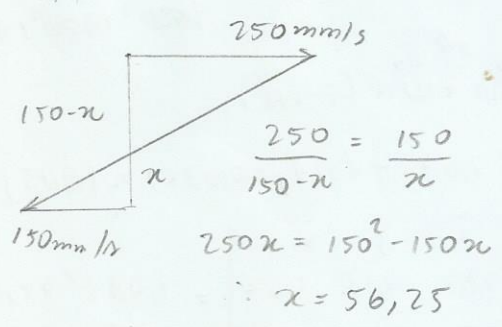 250mm/s
150-x
x
150mm/s
250/150-x = 150/x
250x = 150² - 150x
∴ x = 56,25